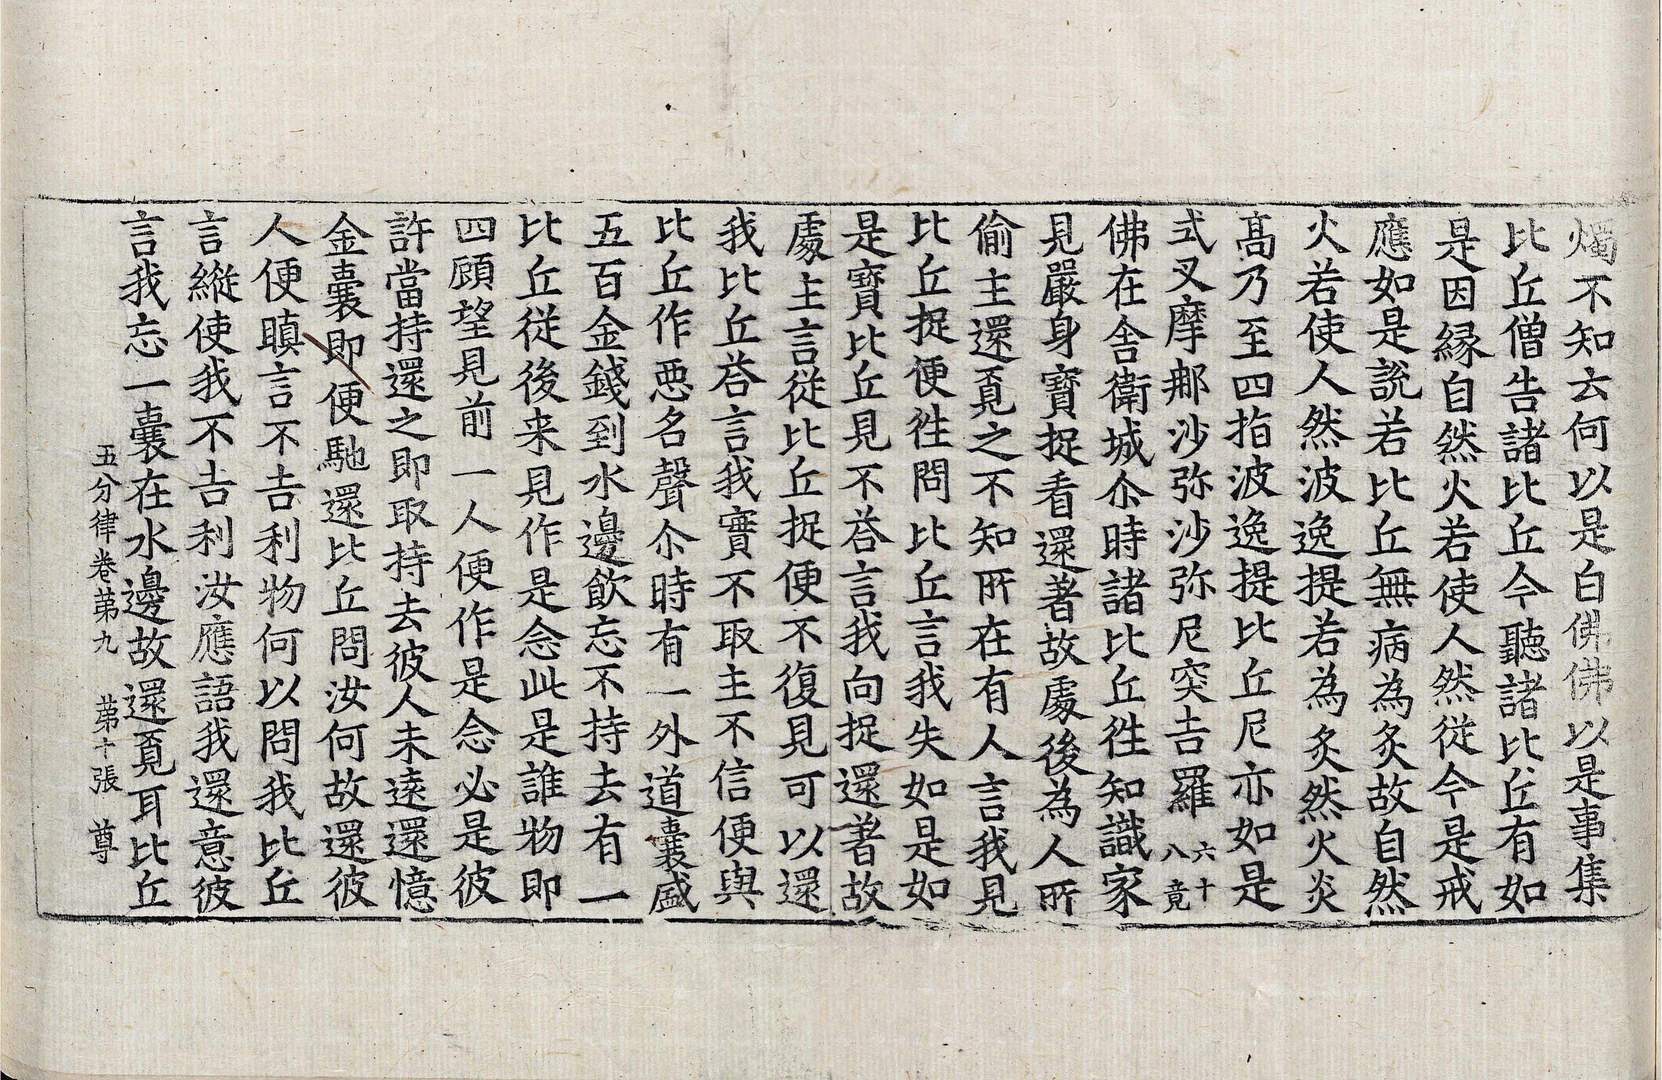 燭不知云何以是白佛佛以是事集
比丘僧告諸比丘今聽諸比丘有如
是因縁自然火若使人然從今是戒
應如是說若比丘無病為炙故自然
火若使人然波逸提若為炙然火炎
髙乃至四指波逸提比丘尼亦如是
式叉摩那沙弥沙弥尼突吉羅六十八竟
佛在舍衛城尒時諸比丘徃知識家
見嚴身寶捉看還著故處後為人所
偷主還覔之不知所在有人言我見
比丘捉便徃問比丘言我失如是如
是寶比丘見不荅言我向捉還著故
處主言從比丘捉便不復見可以還
我比丘荅言我實不取主不信便與
比丘作惡名聲尒時有一外道囊盛
五百金錢到水邊飲忘不持去有一
比丘從後来見作是念此是誰物即
四顧望見前一人便作是念必是彼
許當持還之即取持去彼人未遠還憶
金囊即便馳還比丘問汝何故還彼
人便瞋言不吉利物何以問我比丘
言縱使我不吉利汝應語我還意彼
言我忘一囊在水邊故還覔耳比丘
五分律卷苐九 苐十張 尊